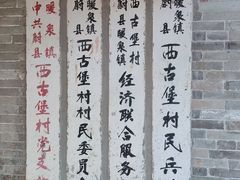 中共蔚县
暖泉镇
西古堡村党支
蔚县
暖泉镇
西古堡村村民委员
蔚县
暖泉镇
西古堡村
经济联合服务
蔚县
暖泉镇
西古堡村民兵